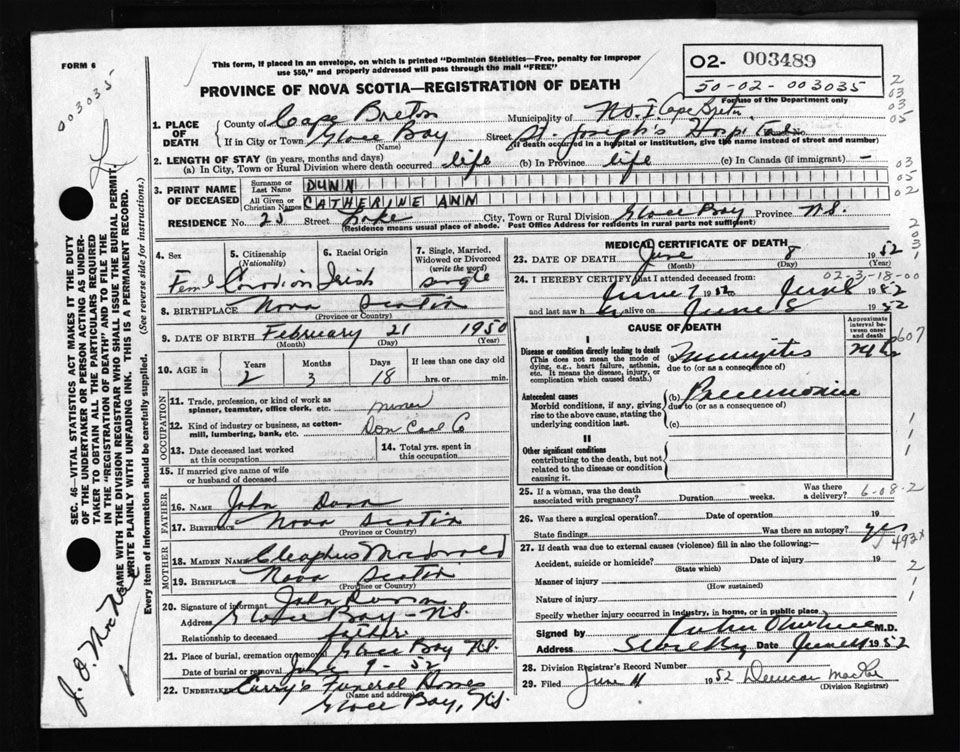 FORM 6
This form, if placed in an envelope, on which is printed "Dominion Statistics—Free, penalty for improper
use $50," and properly addressed will pass through the mail "FREE"
PROVINCE OF NOVA SCOTIA—REGISTRATION OF DEATH
O2- 003489
50-02-003035
For use of the Department only
003035
1. PLACE OF DEATH
County of Cape Breton Municipality of
If in City or Town Glace Bay Street St. Joseph's Hospital
(Name) (If death occurred in a hospital or institution, give the name instead of street and number)
2. LENGTH OF STAY (in years, months and days)
(a) In City, Town or Rural Division where death occurred life (b) In Province life (c) In Canada (if immigrant) —
3. PRINT NAME OF DECEASED
Surname or Last Name DUNN
All Given or Christian Names CATHERINE ANN
RESIDENCE No. 25 Street City, Town or Rural Division Glace Bay Province N.S.
(Residence means usual place of abode. Post Office Address for rural parts not sufficient)
4. Sex 5. Citizenship (Nationality) 6. Racial Origin 7. Single, Married, Widowed or Divorced (write the word)
Feml Canadian Irish single
8. BIRTHPLACE Nova Scotia
(Province or Country)
9. DATE OF BIRTH February 21 1950
(Month) (Day) (Year)
10. AGE in Years Months Days If less than one day old
2 3 18 hrs. or min.
OCCUPATION
11. Trade, profession, or kind of work as spinner, teamster, office clerk, etc. miner
12. Kind of industry or business, as cotton-mill, lumbering, bank, etc. Dom Coal Co
13. Date deceased last worked at this occupation
14. Total yrs. spent in this occupation
15. If married give name of wife or husband of deceased
FATHER
16. Name John Dunn
17. Birthplace Nova Scotia
(Province or Country)
MOTHER
18. MAIDEN NAME Cleophus Macdonald
19. BIRTHPLACE Nova Scotia
(Province or Country)
20. Signature of informant John Dunn
Address Glace Bay - N.S.
Relationship to deceased father
21. Place of burial, cremation or removal Glace Bay N.S.
Date of burial or removal June 9 - 52
22. Undertaker Curry's Funeral Homes
(Name and address)
Glace Bay, N.S.
MEDICAL CERTIFICATE OF DEATH
23. DATE OF DEATH June 8 1952
(Month) (Day)
02-3-18-00
24. I HEREBY CERTIFY that I attended deceased from
June 7 1952 to June 8 1952
and last saw her alive on June 8 1952
CAUSE OF DEATH
Approximate interval between onset and death
I
Disease or condition directly leading to death
(This does not mean the mode of dying, e.g., heart failure, asthenia, etc. It means the disease, injury, or complication which caused death.)
(a)
due to (or as a consequence of)
Antecedent causes
Morbid conditions, if any, giving rise to the above cause, stating the underlying condition last.
(b) Pneumonia
due to (or as a consequence of)
(c)
II
Other significant conditions
contributing to the death, but not related to the disease or condition causing it.
25. If a woman, was the death associated with pregnancy? Duration weeks. Was there a delivery? 6-08-2
26. Was there a surgical operation? Date of operation 19
State findings Was there an autopsy? yes
493x
27. If death was due to external causes (violence) fill in also the following:
Accident, suicide or homicide? Date of injury 19
(State which)
Manner of injury
(How sustained)
Nature of injury
Specify whether injury occurred in industry, in home, or in public place
Signed by M.D.
Address Date June 1952
28. Division Registrar's Record Number
29. Filed June 11 1952 Duncan MacRae
(Division Registrar)
SEC. 46—VITAL STATISTICS ACT MAKES IT THE DUTY
OF THE UNDERTAKER OR PERSON ACTING AS UNDER-
TAKER TO OBTAIN ALL THE PARTICULARS REQUIRED
IN THE "REGISTRATION OF DEATH" AND TO FILE THE
SAME WITH THE DIVISION REGISTRAR WHO SHALL ISSUE THE BURIAL PERMIT.
WRITE PLAINLY WITH UNFADING INK. THIS IS A PERMANENT RECORD.
Every item of information should be carefully supplied. (See reverse side for instructions.)